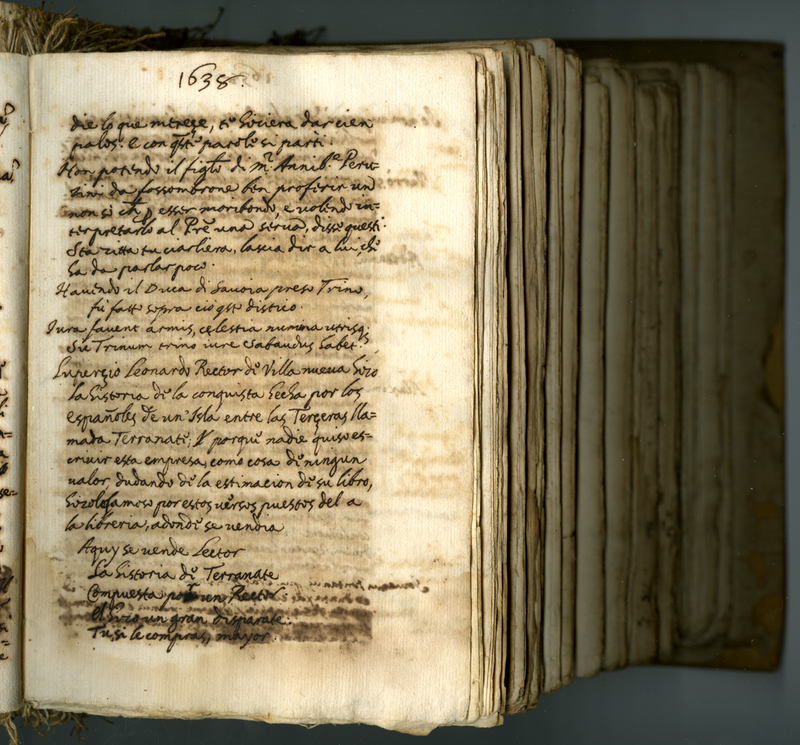 1638.
die lo que merece, te hiciera dar cien
palos. e con qste parole si partì.
Non potendo il figlo di mr Annib.e Peru-
zini da fossombrone ben proferir un
non so che p esser moribondo, e volendo in-
terpretarlo al Pre una serva, disse questi
Sta zitta tu ciarliera, lascia dir a lui, che
ha da parlar poco.
Havendo il Duca di Savoia preso Trino,
fù fatto sopra ciò qsto distico.
Iura favent armis, cęlestia numina utrisq;
Sic Trinum trino iure Sabaudus habet.
Lupercio Leonardo Rector de Villa nueva hizo
la historia de la conquista hecha por los
españoles de un' Isla entre las Terçeras lla=
mada Terranate; Y porque nadie quiso es-
crivir esta empresa, como cosa de ningun
valor, dudando de la estimacion de su libro,
hizolo famoso por estos versos puestos del a
la libreria, adonde se vendia
Aquy se vende Lector
La historia de Terranate
Compuesta por un Rector
El hizo un gran disparate.
Tu si le compras, mayor.